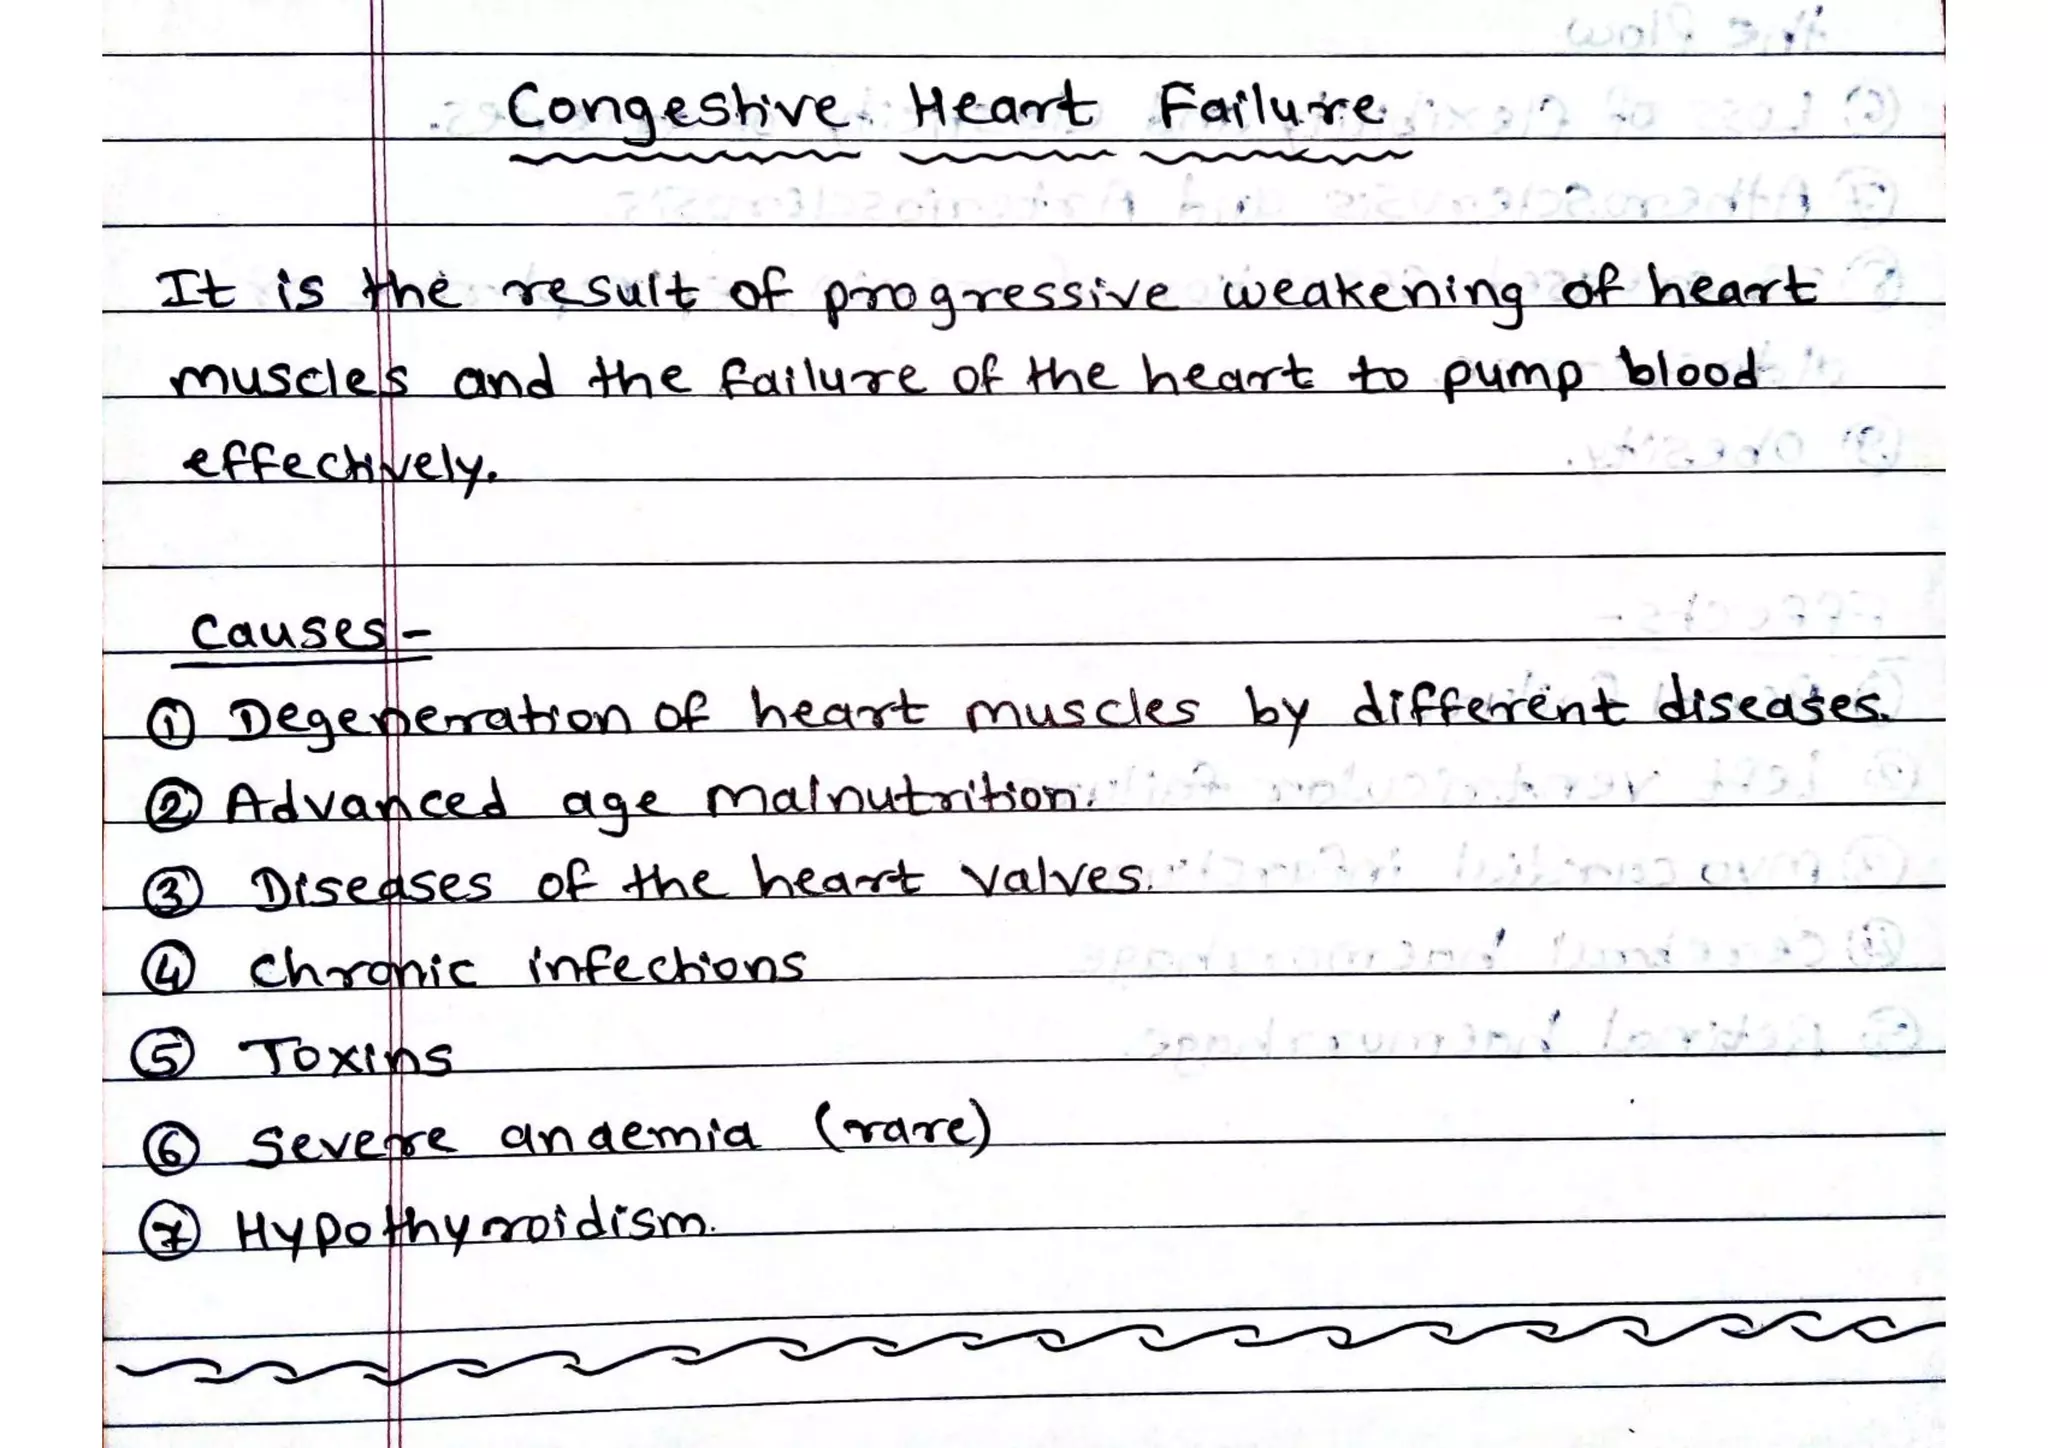 Congestive Heart Failure
It is the result of progressive weakening of heart
muscles and the failure of the heart to pump blood
effectively.
Causes -
① Degeneration of heart muscles by different diseases.
② Advanced age malnutrition.
③ Diseases of the heart valves.
④ Chronic infections
⑤ Toxins
⑥ Severe anaemia (rare)
⑦ Hypothyroidism.